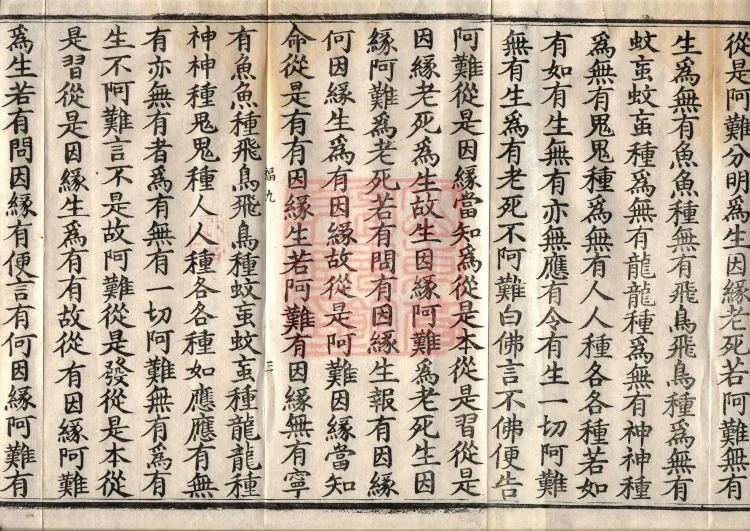 從是阿難分明爲生因縁老死若阿難無有
生爲無有魚魚種無有飛鳥飛鳥種爲無有
蚊䖟蚊䖟種爲無有龍龍種爲無有神神種
爲無有鬼鬼種爲無有人人種各各種若如
有如有生無有亦無應有令有生一切阿難
無有生爲有老死不阿難白佛言不佛便告
阿難從是因縁當知爲從是本從是習從是
因縁老死爲生故生因縁阿難爲老死生因
縁阿難爲老死若有問有因縁生報有因縁
何因縁生爲有因縁故從是阿難因縁當知
命從是有有因縁生若阿難有因縁無有寧
福九
三
有魚魚種飛鳥飛鳥種蚊䖟蚊䖟種龍龍種
神神種鬼鬼種人人種各各種如應應有無
有亦無有者爲有無有一切阿難無有爲有
生不阿難言不是故阿難從是發從是本從
是習從是因縁生爲有有故從有因縁阿難
爲生若有問因縁有便言有何因縁阿難有